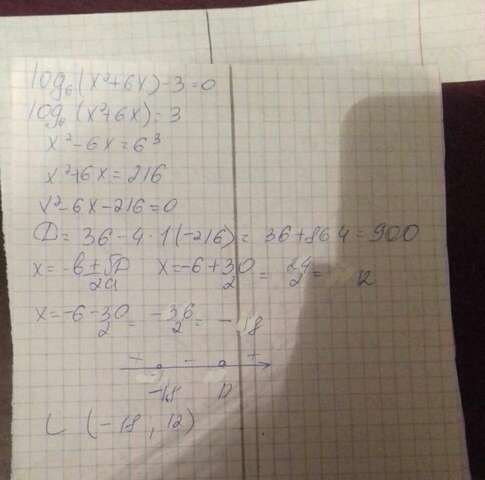 log₆(x²+6x)-3=0
log₆(x²+6x)=3
x²-6x=6³
x²+6x=216
x²-6x-216=0
D=36-4·1(-216)=36+864=900
x=-b±√D/2a x=-6+30/2=24/2=12
x=-6-30/2=-36/2=-18
- - +
-18 12
(-18, 12)